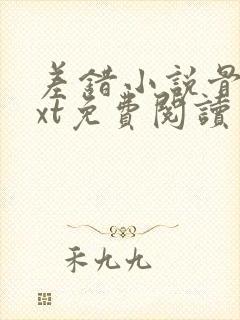 差錯小說骨
xt免費閱讀
禾九九